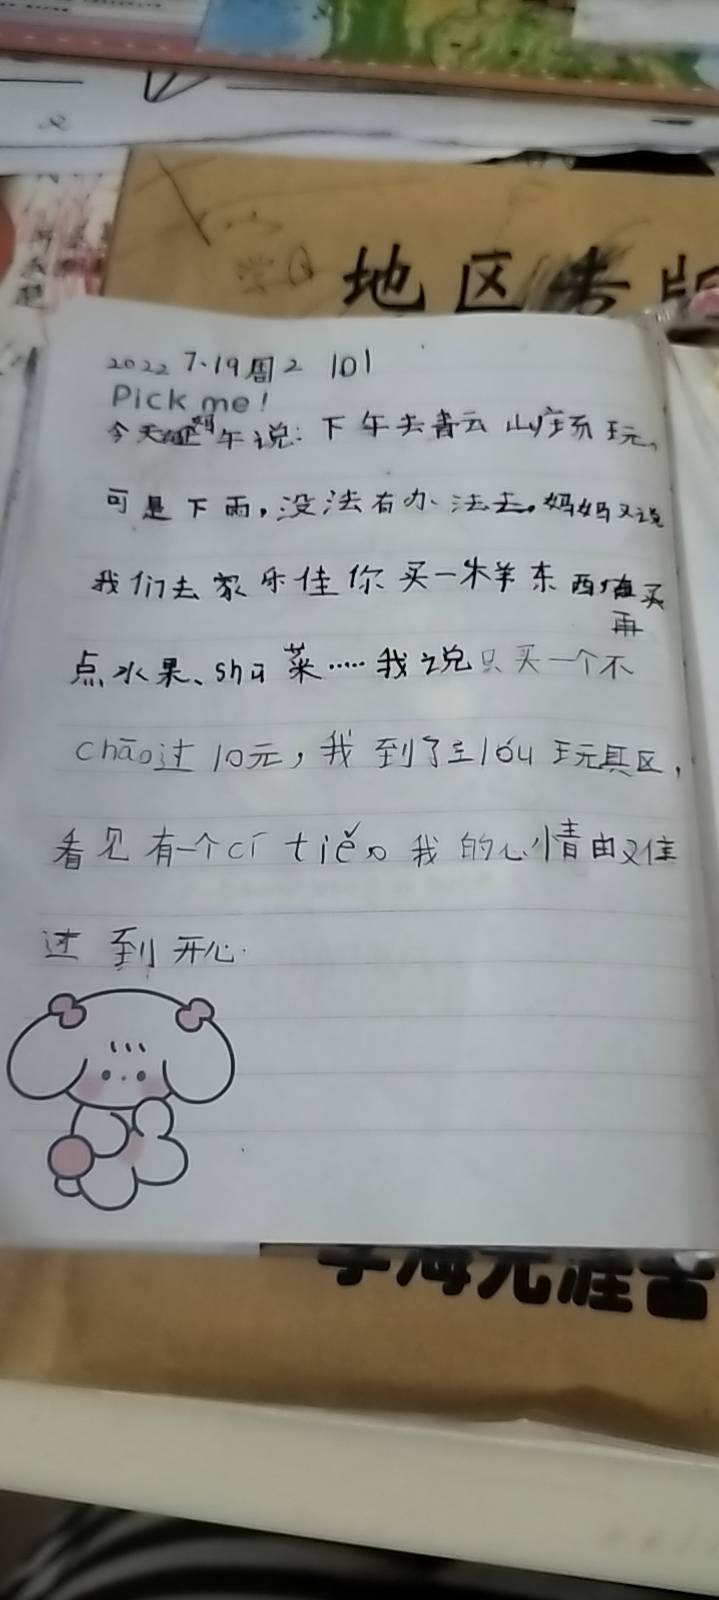 地区专版
2022 7.19周2 101
Pick me!
今天妈午说:下午去青云山广场玩,
可是下雨,没法有办法去。妈妈又说
我们去家乐佳你买一朱羊东西,再买
点水果、shū菜……我说只买一个不
chāo过10元,我到了三lóu玩具区,
看见有一个cí tiě,我的心情由又隹
过到开心.
学海无涯書